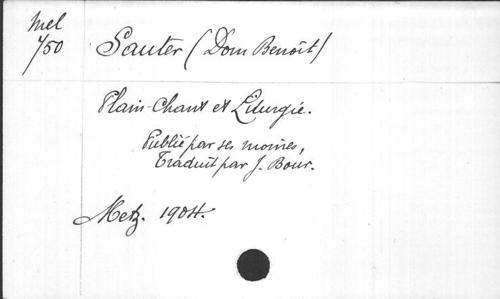 Mel
750
Sauter (Dom Benoît)
Plain-Chant et Liturgie.
Publié par ses moines,
Traduit par J. Bour.
Metz. 1904.